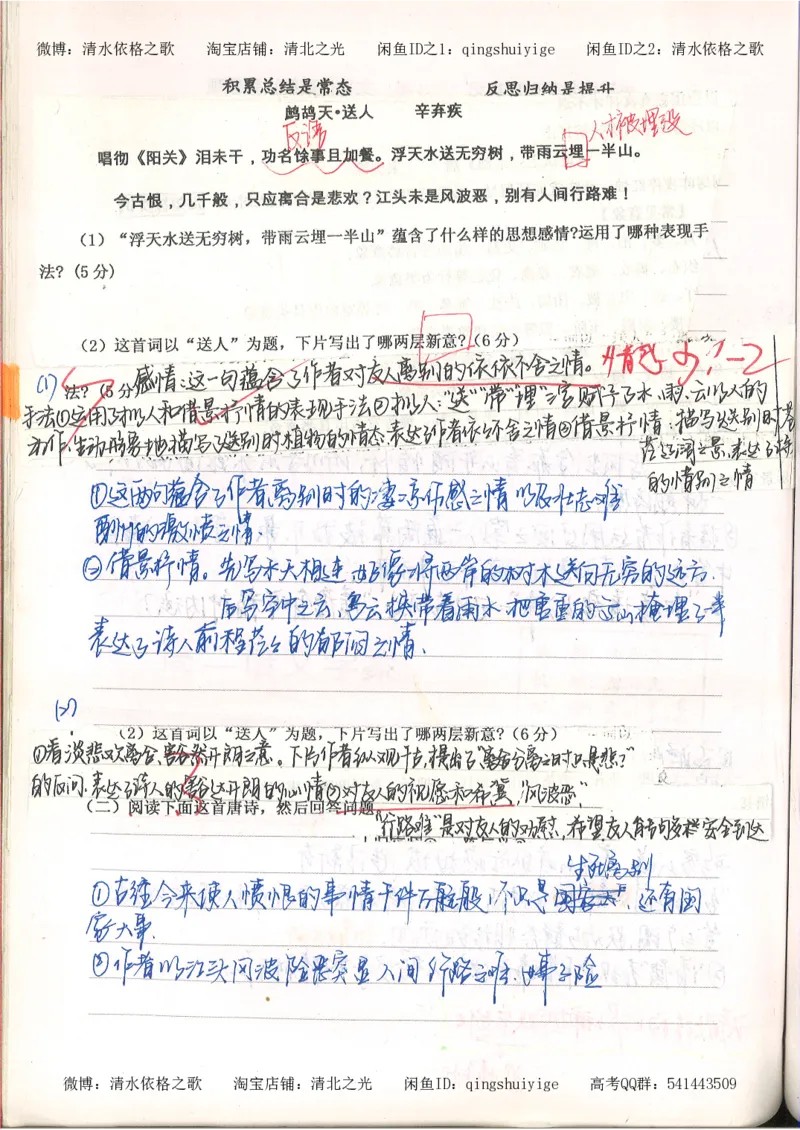 微博：清水依格之歌 淘宝店铺：清北之光 闲鱼ID之1：qingshuiyige 闲鱼ID之2：清水依格之歌
积累总结是常态 反思归纳是提升
鹧鸪天·送人 辛弃疾
反语
人才被埋没
唱彻《阳关》泪未干，功名馀事且加餐。浮天水送无穷树，带雨云埋一半山。
今古恨，几千般，只应离合是悲欢？江头未是风波恶，别有人间行路难！
（1）“浮天水送无穷树，带雨云埋一半山”蕴含了什么样的思想感情?运用了哪种表现手
法？(5分)
（2）这首词以“送人”为题，下片写出了哪两层新意?(6分)
情感
(1) 法？(5分 感情：这一句蕴含了作者对友人离别的依依不舍之情。
手法①运用了拟人和借景抒情的表现手法②拟人："送""带""埋"三字赋予了水、雨、云以人的
动作，生动形象地描写了送别时植物的情态，表达了作者依依不舍之情③借景抒情：描写了送别时
之景，表达了
的惜别之情
①这两句蕴含了作者离别时的凄凉伤感之情以及壮志难
酬的激愤之情.
②借景抒情。先写水天相连，好像将两岸的树木送向无穷的远方.
后写空中之云，乌云挟带着雨水，把重重的高山掩埋了一半
表达了诗人前程茫茫的郁闷之情.
(2)
（2）这首词以“送人”为题，下片写出了哪两层新意？(6分)
①看淡悲欢离合，豁然开朗之意。下片作者纵观千古，提出了"离合分离之时只是悲？"
的反问，表达了诗人的豁达开朗的心情②对友人的祝愿和希冀，"风波恶"，
（二）阅读下面这首唐诗，然后回答问题。
"行路难"是对友人的劝慰，希望友人安全到达
生死离别
①古往今来使人愤恨的事情千件万般，不只是，还有国
家大事.
②作者以江头风波险恶突显人间行路之难，世事之险
微博：清水依格之歌 淘宝店铺：清北之光 闲鱼ID：qingshuiyige 高考QQ群：541443509